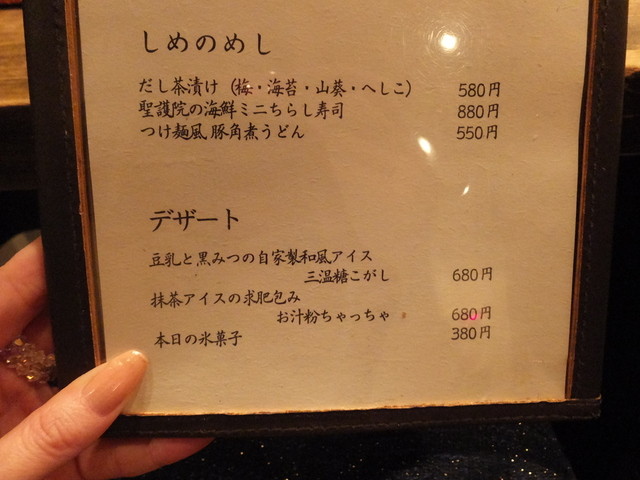 しめのめし
だし茶漬け（梅・海苔・山葵・へしこ） 580円
聖護院の海鮮ミニちらし寿司 880円
つけ麺風 豚角煮うどん 550円
デザート
豆乳と黒みつの自家製和風アイス
三温糖こがし 680円
抹茶アイスの求肥包み
お汁粉ちゃっちゃ 680円
本日の氷菓子 380円